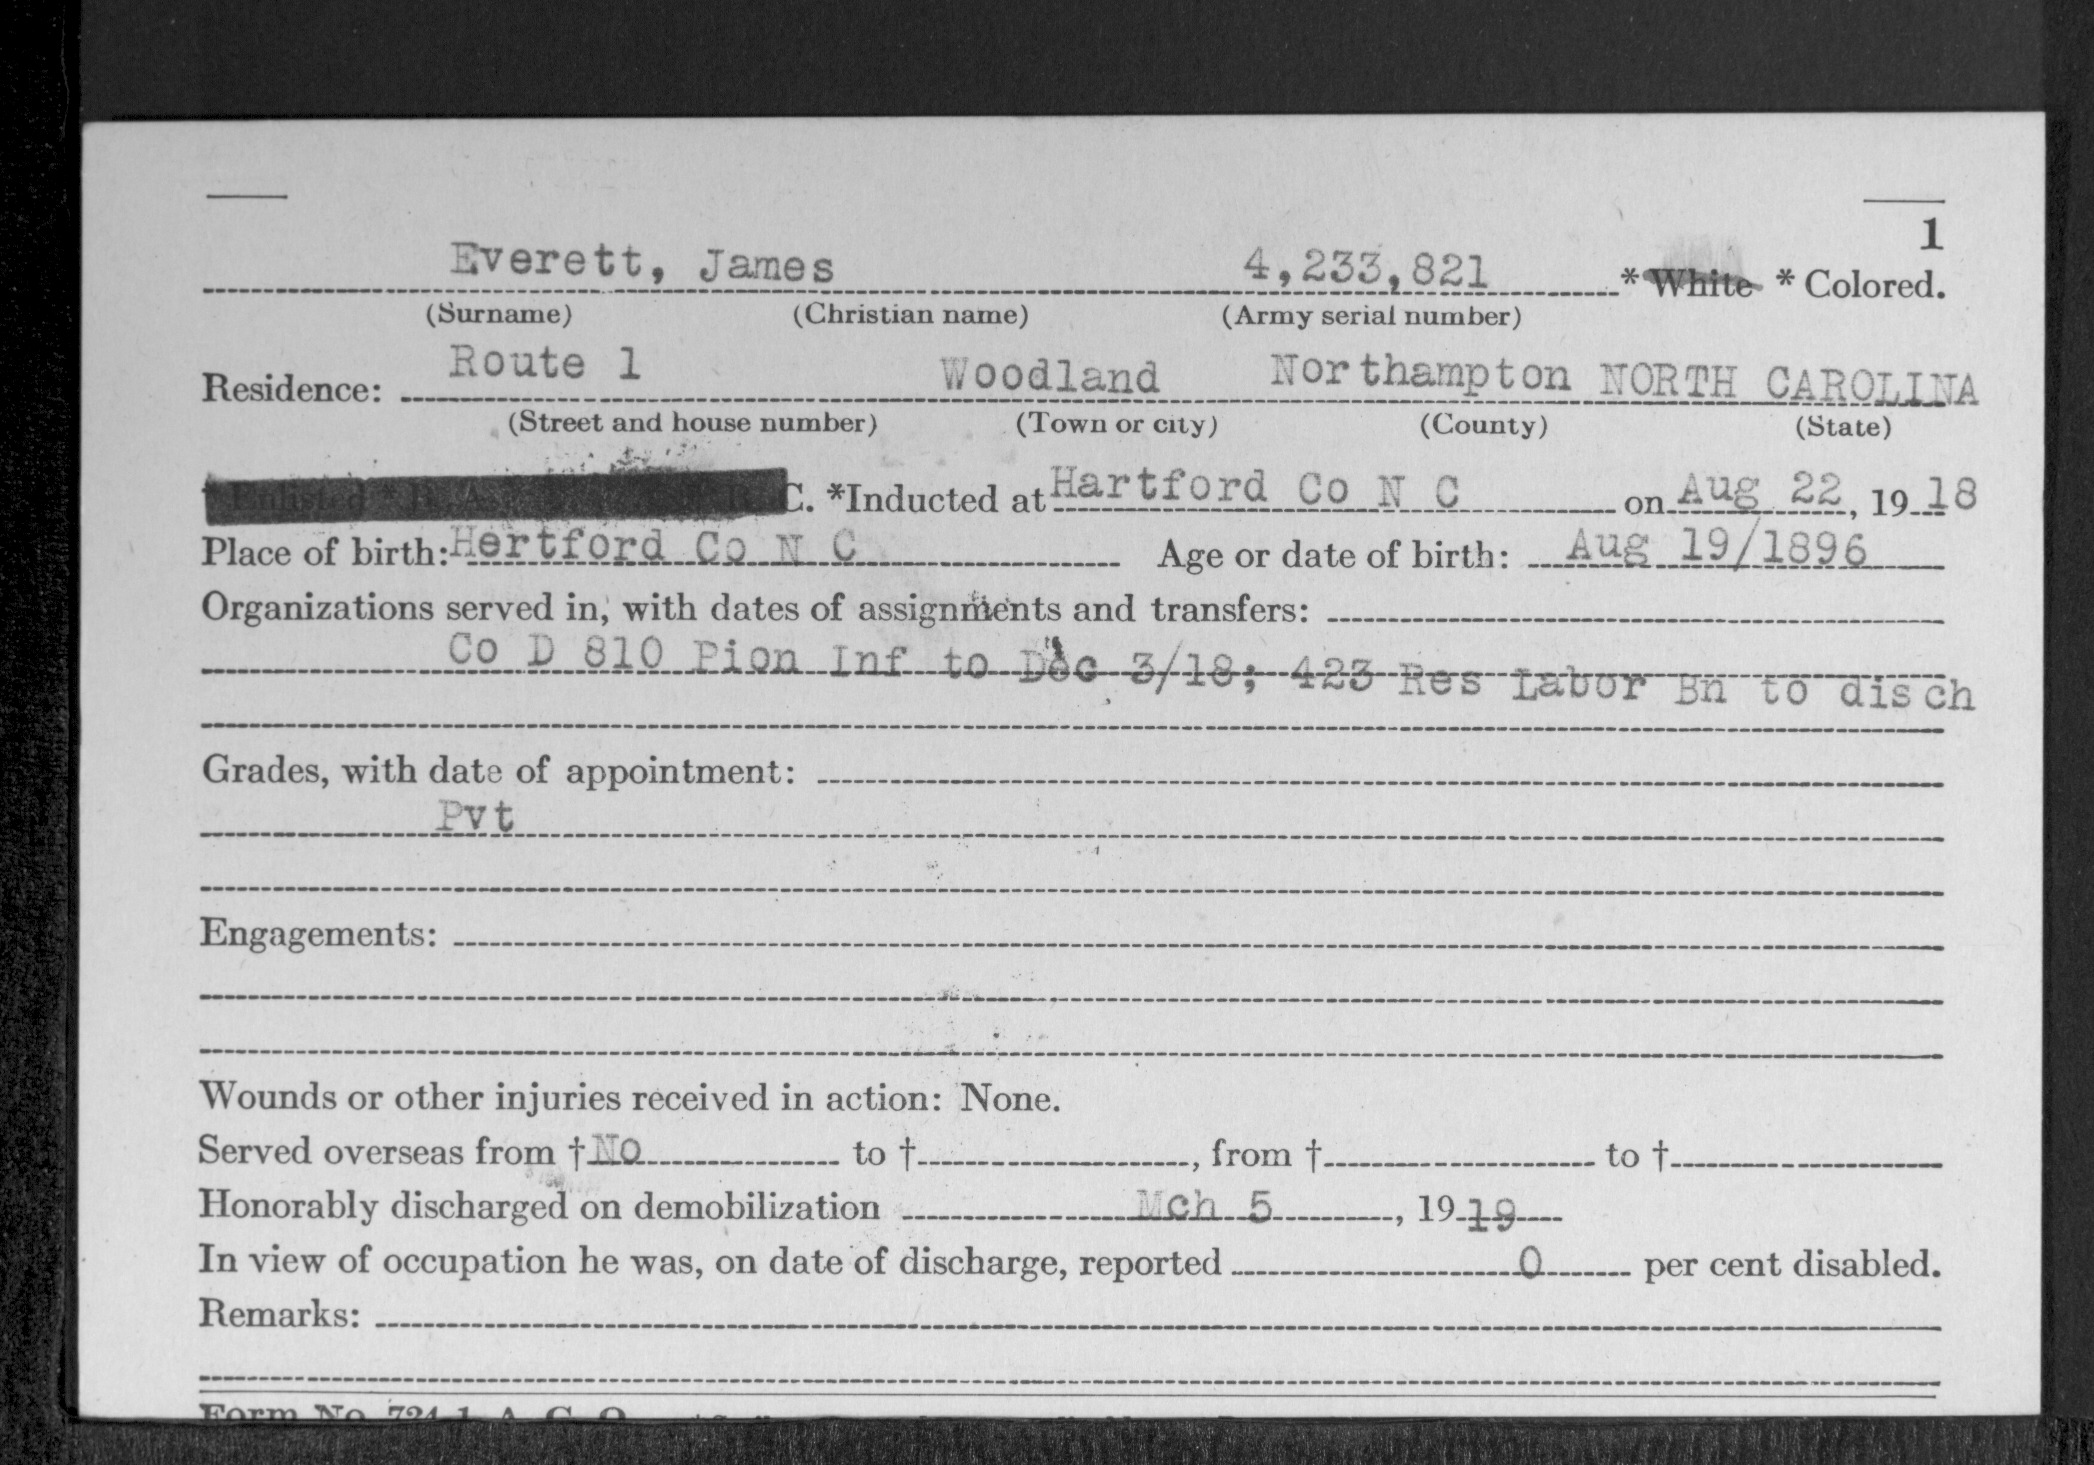 1
Everett, James 4,233,821 * White * Colored.
(Surname) (Christian name) (Army serial number)
Residence: Route 1 Woodland Northampton NORTH CAROLINA
(Street and house number) (Town or city) (County) (State)
Enlisted R. A. C. *Inducted at Hartford Co N C on Aug 22, 19 18
Place of birth: Hertford Co N C Age or date of birth: Aug 19/1896
Organizations served in, with dates of assignments and transfers:
Co D 810 Pion Inf to Dec 3/18; 423 Res Labor Bn to disch
Grades, with date of appointment:
Pvt
Engagements:
Wounds or other injuries received in action: None.
Served overseas from † No to †, from † to †
Honorably discharged on demobilization Mch 5, 19 19
In view of occupation he was, on date of discharge, reported 0 per cent disabled.
Remarks:
Form No. 724-1, A. G. O.